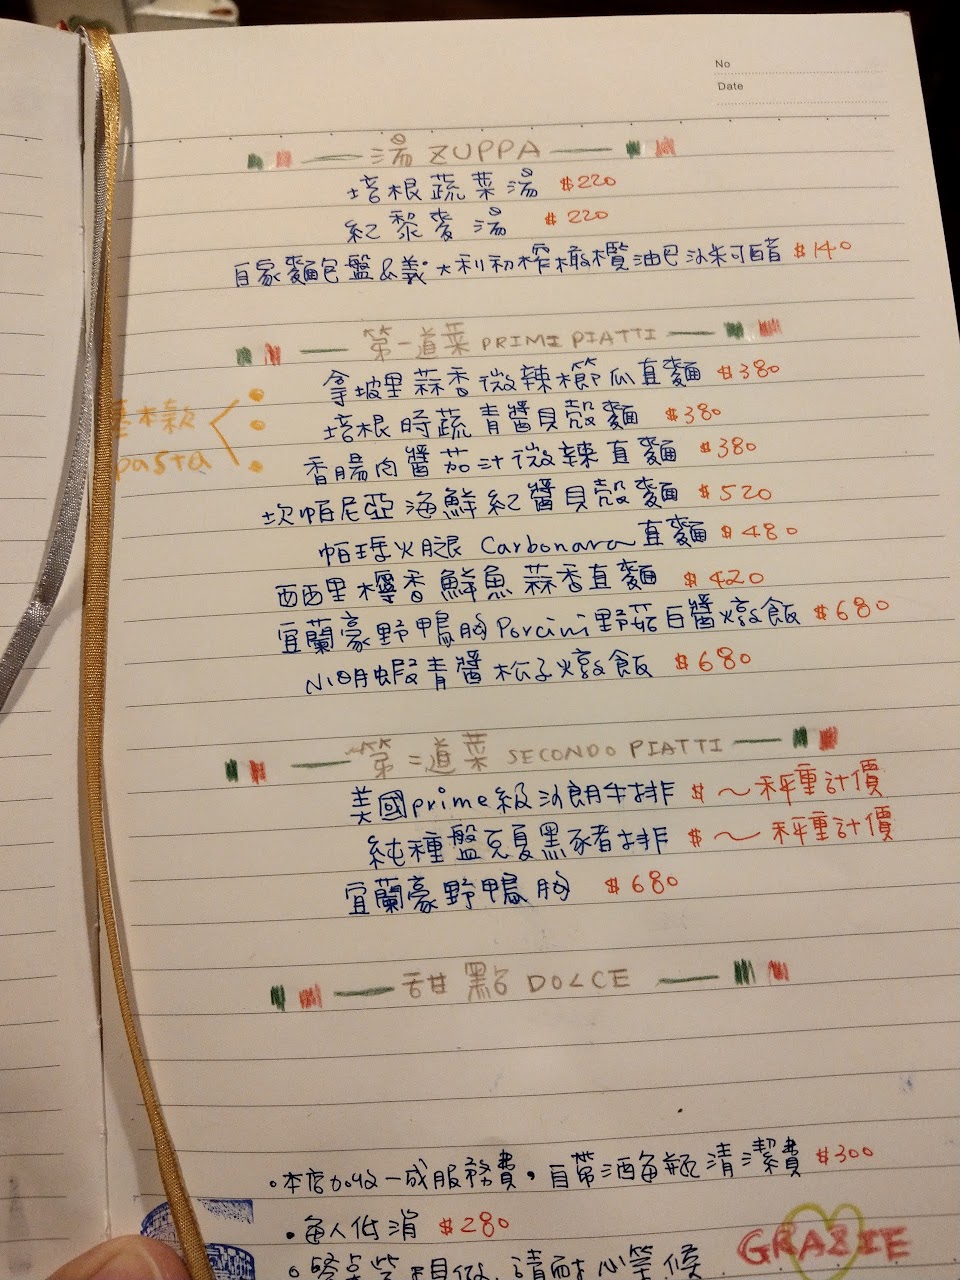 No
Date
湯 ZUPPA
培根蔬菜湯 $220
紅藜麥湯 $220
自家麵包盤&義大利初榨橄欖油巴沙米可醋 $140
第一道菜 PRIMI PIATTI
拿坡里蒜香微辣櫛瓜直麵 $380
培根時蔬青醬貝殼麵 $380
基本款
pasta
香腸肉醬茄汁微辣直麵 $380
坎帕尼亞海鮮紅醬貝殼麵 $520
帕瑪火腿 Carbonara 直麵 $480
西西里檸香鮮魚蒜香直麵 $420
宜蘭豪野鴨胸Porcini野菇白醬燉飯 $680
小明蝦青醬松子燉飯 $680
第二道菜 SECONDO PIATTI
美國prime級沙朗牛排 $~秤重計價
純種盤克夏黑豬排 $~秤重計價
宜蘭豪野鴨胸 $680
甜點 DOLCE
•本店加收一成服務費。自帶酒每瓶清潔費 $300
•每人低消 $280
請耐心等候
GRAZIE